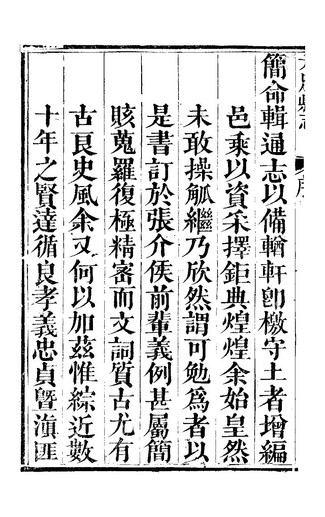 簡命輯通志以備輶軒卽檄守土者增編
邑乘以資采擇鉅典煌煌余始皇然
未敢操觚繼乃欣然謂可勉爲者以
是書訂於張介侯前輩義例甚屬簡
賅蒐羅復極精審而文詞質古尤有
古良史風余又何以加茲惟綜近數
十年之賢達循良孝義忠貞曁滇匪